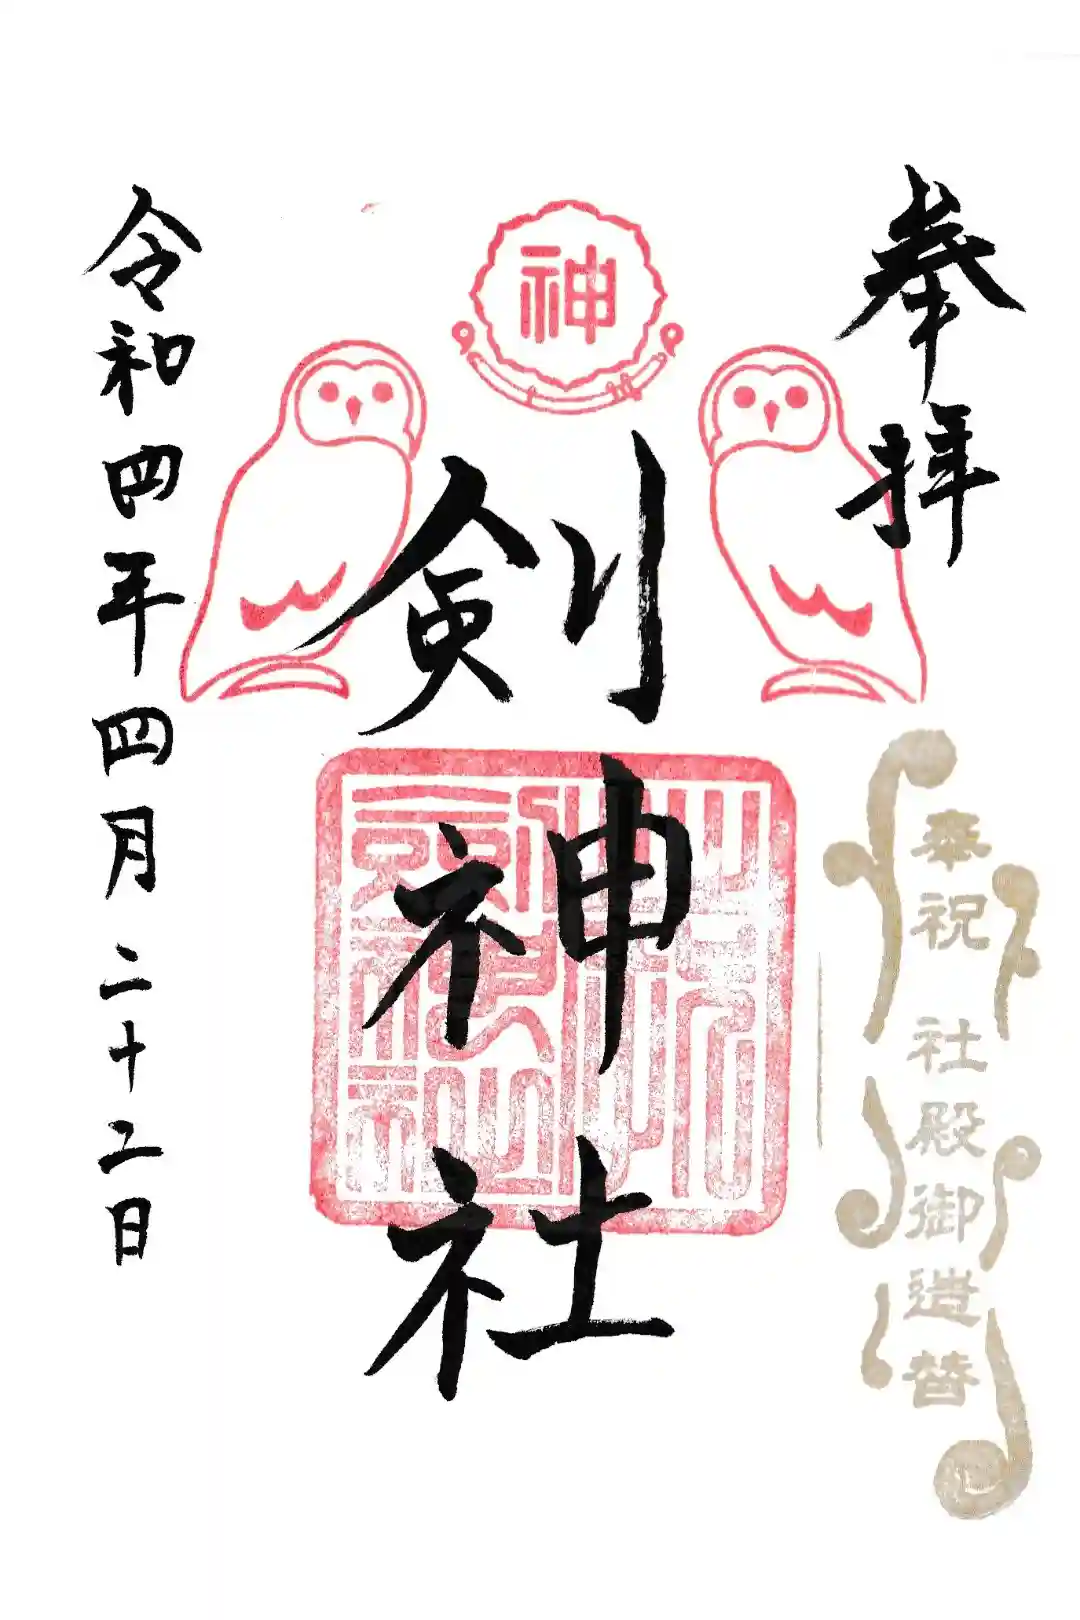 奉拝
奉祝 社殿御造替
神
剣神社
令和四年四月二十二日